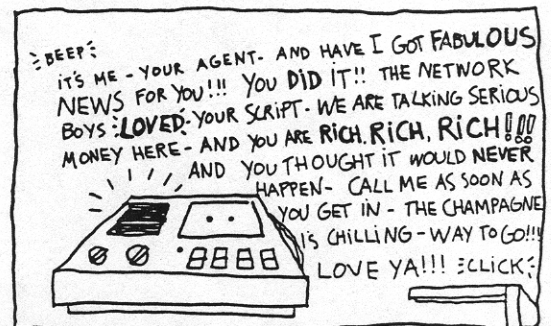 BEEP
IT'S ME - YOUR AGENT - AND HAVE I GOT FABULOUS
NEWS FOR YOU!!! YOU DID IT!! THE NETWORK
BOYS LOVED YOUR SCRIPT - WE ARE TALKING SERIOUS
MONEY HERE - AND YOU ARE RICH, RICH, RICH!!!
AND YOU THOUGHT IT WOULD NEVER
HAPPEN - CALL ME AS SOON AS
YOU GET IN - THE CHAMPAGNE
IS CHILLING - WAY TO GO!!!
LOVE YA!!! CLICK